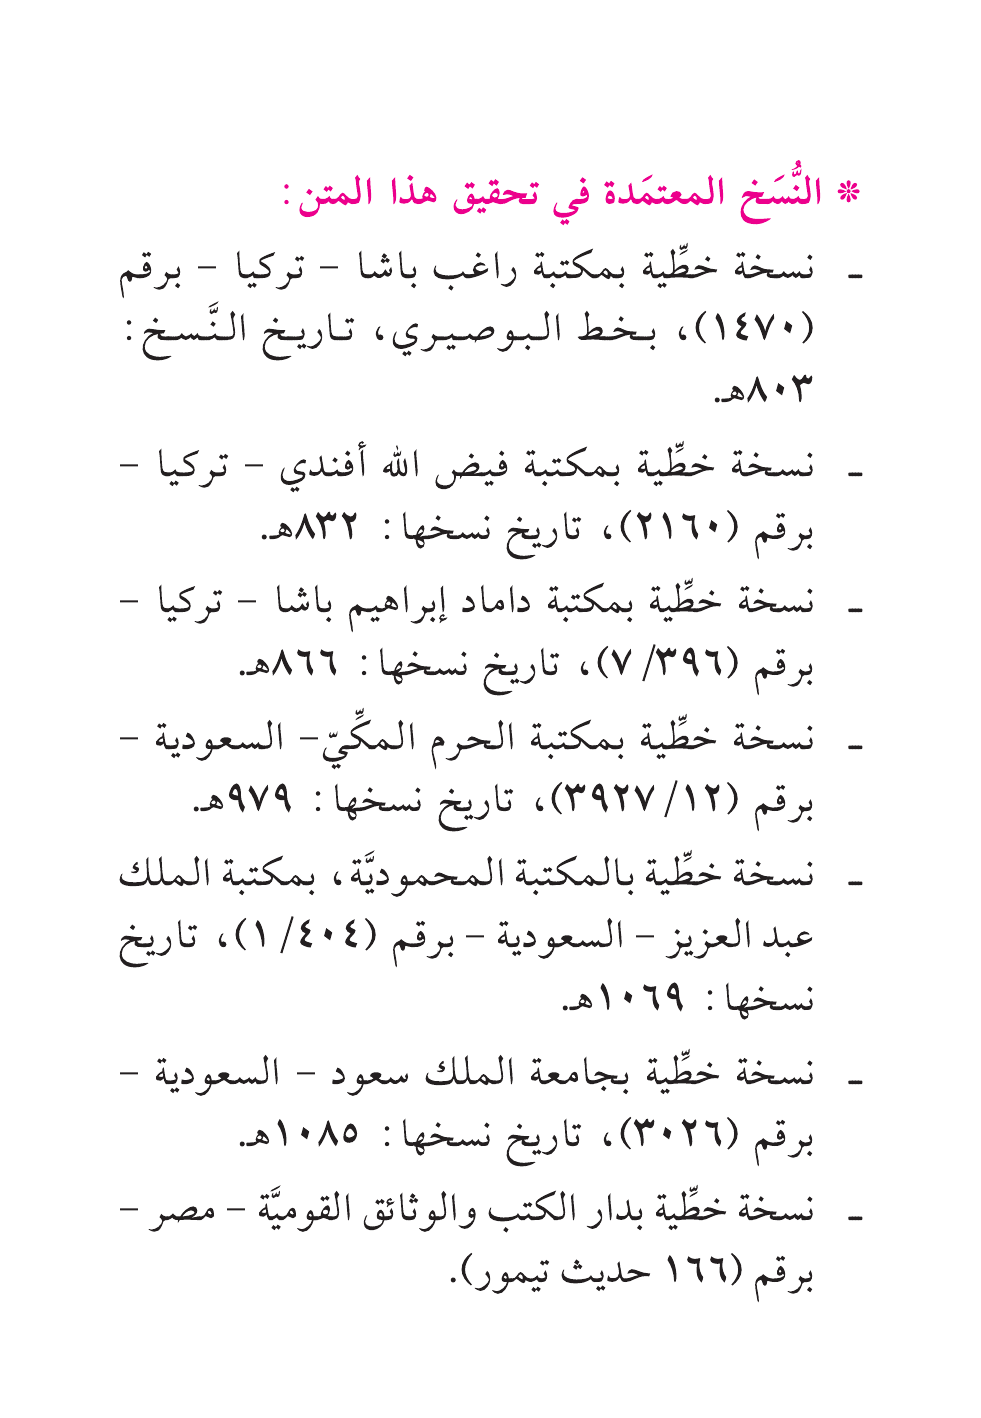 ❊ النُّسَخ المعتمَدة في تحقيق هذا المتن:
ـ نسخة خطِّية بمكتبة راغب باشا – تركيا – برقم
(١٤٧٠)، بخط البوصيري، تاريخ النَّسخ:
٨٠٣هـ.
ـ نسخة خطِّية بمكتبة فيض الله أفندي – تركيا –
برقم (٢١٦٠)، تاريخ نسخها: ٨٣٢هـ.
ـ نسخة خطِّية بمكتبة داماد إبراهيم باشا – تركيا –
برقم (٣٩٦/ ٧)، تاريخ نسخها: ٨٦٦هـ.
ـ نسخة خطِّية بمكتبة الحرم المكِّيّ– السعودية –
برقم (١٢/ ٣٩٢٧)، تاريخ نسخها: ٩٧٩هـ.
ـ نسخة خطِّية بالمكتبة المحموديَّة، بمكتبة الملك
عبد العزيز – السعودية – برقم (٤٠٤/ ١)، تاريخ
نسخها: ١٠٦٩هـ.
ـ نسخة خطِّية بجامعة الملك سعود – السعودية –
برقم (٣٠٢٦)، تاريخ نسخها: ١٠٨٥هـ.
ـ نسخة خطِّية بدار الكتب والوثائق القوميَّة – مصر –
برقم (١٦٦ حديث تيمور).